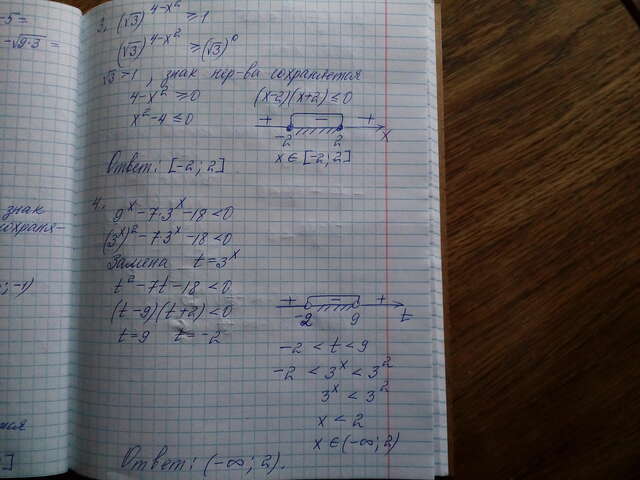 -5=
-√9·3 =
знак
сохраня-
; -1)
3. (√3)^(4-x²) ≥ 1
(√3)^(4-x²) ≥ (√3)⁰
√3 > 1, знак нер-ва сохраняется
4-x² ≥ 0 (x-2)(x+2) ≤ 0
x²-4 ≤ 0
+ - +
-2 2 x
x ∈ [-2; 2]
Ответ: [-2; 2]
4.
9^x - 7·3^x - 18 < 0
(3^x)² - 7·3^x - 18 < 0
Замена t = 3^x
t² - 7t - 18 < 0
(t-9)(t+2) < 0
t = 9 t = -2
+ - +
-2 9 t
-2 < t < 9
-2 < 3^x < 3²
3^x < 3²
x < 2
x ∈ (-∞; 2)
Ответ: (-∞; 2).